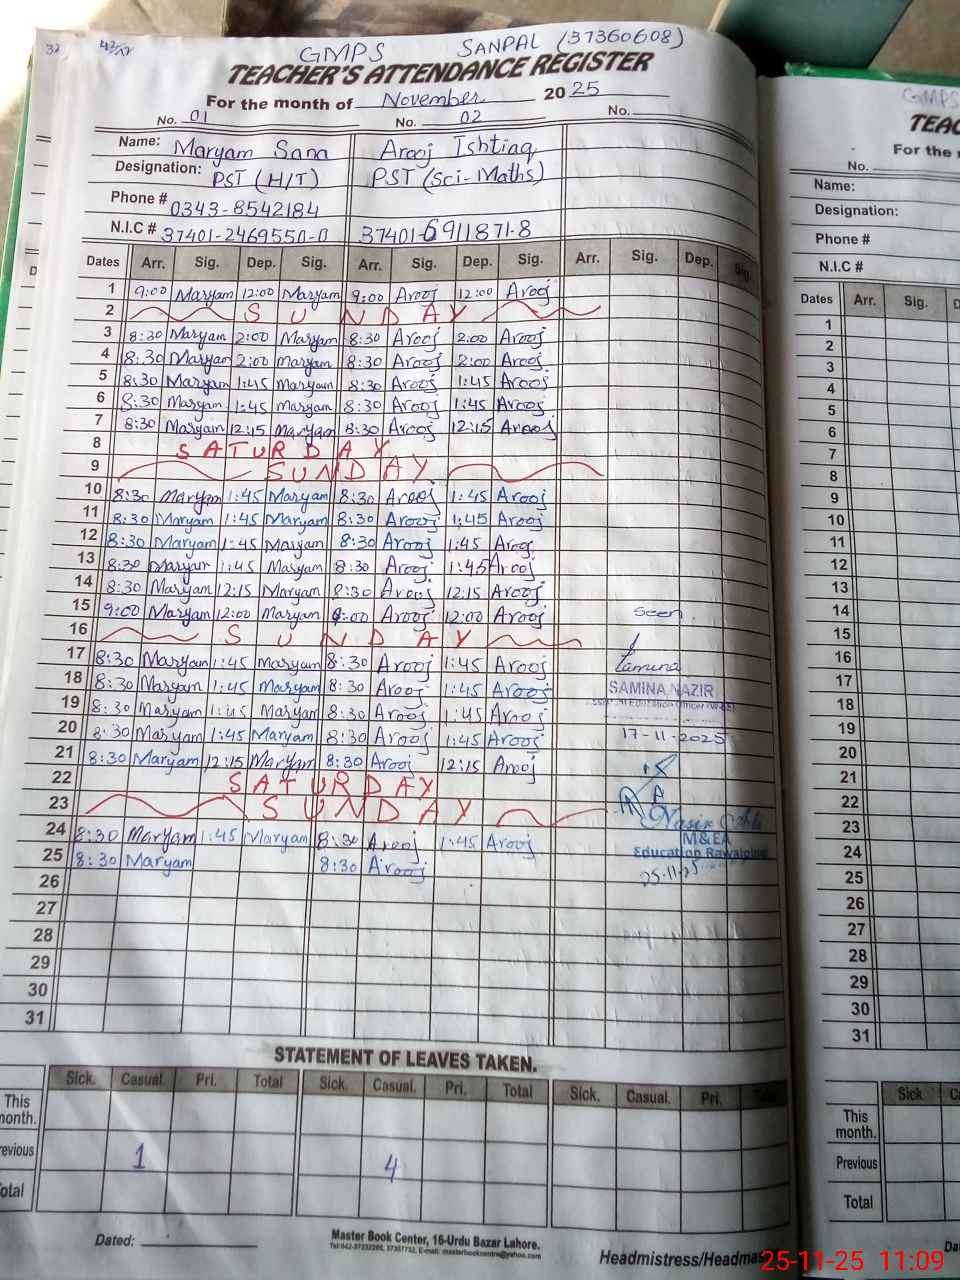 32 42/12
GMPS SANPAL (37360608)
TEACHER'S ATTENDANCE REGISTER
For the month of November 2025
No. 01 No. 02 No.
Name: Maryam Sana Arooj Ishtiaq
Designation: PST (H/T) PST (Sci-Maths)
Phone # 0343-8542184
N.I.C # 37401-2469550-0 37401-6911871-8
Dates Arr. Sig. Dep. Sig. Arr. Sig. Dep. Sig. Arr. Sig. Dep. Sig.
1 9:00 Maryam 12:00 Maryam 9:00 Arooj 12:00 Arooj
2 SUNDAY
3 8:30 Maryam 2:00 Maryam 8:30 Arooj 2:00 Arooj
4 8:30 Maryam 2:00 Maryam 8:30 Arooj 2:00 Arooj
5 8:30 Maryam 1:45 Maryam 8:30 Arooj 1:45 Arooj
6 8:30 Maryam 1:45 Maryam 8:30 Arooj 1:45 Arooj
7 8:30 Maryam 12:15 Maryam 8:30 Arooj 12:15 Arooj
8 SATURDAY
9 SUNDAY
10 8:30 Maryam 1:45 Maryam 8:30 Arooj 1:45 Arooj
11 8:30 Maryam 1:45 Maryam 8:30 Arooj 1:45 Arooj
12 8:30 Maryam 1:45 Maryam 8:30 Arooj 1:45 Arooj
13 8:30 Maryam 1:45 Maryam 8:30 Arooj 1:45 Arooj
14 8:30 Maryam 12:15 Maryam 8:30 Arooj 12:15 Arooj
15 9:00 Maryam 12:00 Maryam 9:00 Arooj 12:00 Arooj Seen
16 SUNDAY
17 8:30 Maryam 1:45 Maryam 8:30 Arooj 1:45 Arooj Samina
18 8:30 Maryam 1:45 Maryam 8:30 Arooj 1:45 Arooj SAMINA NAZIR
19 8:30 Maryam 1:45 Maryam 8:30 Arooj 1:45 Arooj
20 8:30 Maryam 1:45 Maryam 8:30 Arooj 1:45 Arooj 17-11-2025
21 8:30 Maryam 12:15 Maryam 8:30 Arooj 12:15 Arooj
22 SATURDAY
23 SUNDAY
24 8:30 Maryam 1:45 Maryam 8:30 Arooj 1:45 Arooj M&EA
25 8:30 Maryam 8:30 Arooj Education Rawalpindi
26 25-11-25
27
28
29
30
31
STATEMENT OF LEAVES TAKEN.
Sick. Casual. Pri. Total Sick. Casual. Pri. Total Sick. Casual. Pri.
This month.
Previous 1 4
Total
Dated:
Master Book Center, 16-Urdu Bazar Lahore.
Headmistress/Headmas
GMPS
TEAC
For the
No.
Name:
Designation:
Phone #
N.I.C #
Dates Arr. Sig. D
1
2
3
4
5
6
7
8
9
10
11
12
13
14
15
16
17
18
19
20
21
22
23
24
25
26
27
28
29
30
31
Sick C
This month.
Previous
Total
25-11-25 11:09